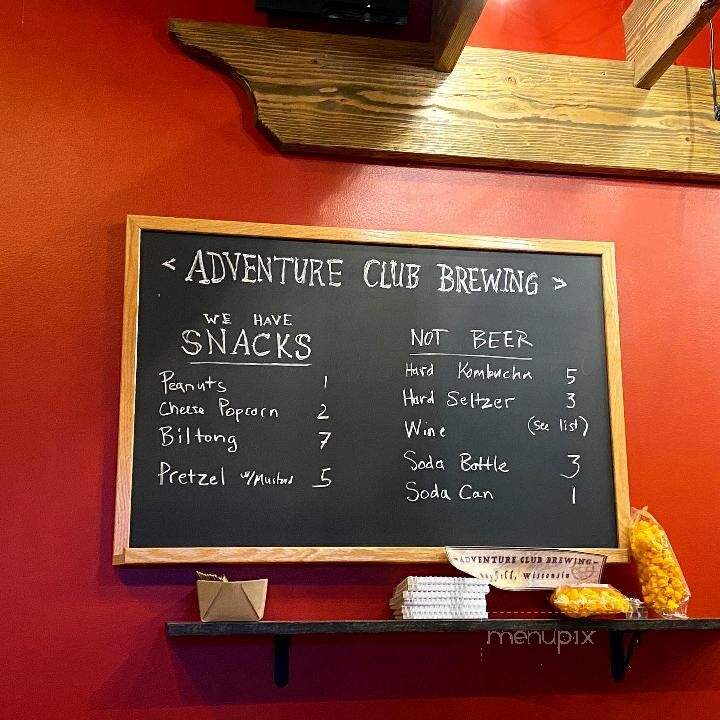 < ADVENTURE CLUB BREWING >
WE HAVE
SNACKS
Peanuts 1
Cheese Popcorn 2
Biltong 7
Pretzel w/Mustard 5
NOT BEER
Hard Kombucha 5
Hard Seltzer 3
Wine (see list)
Soda Bottle 3
Soda Can 1
ADVENTURE CLUB BREWING
Wisconsin
menupix